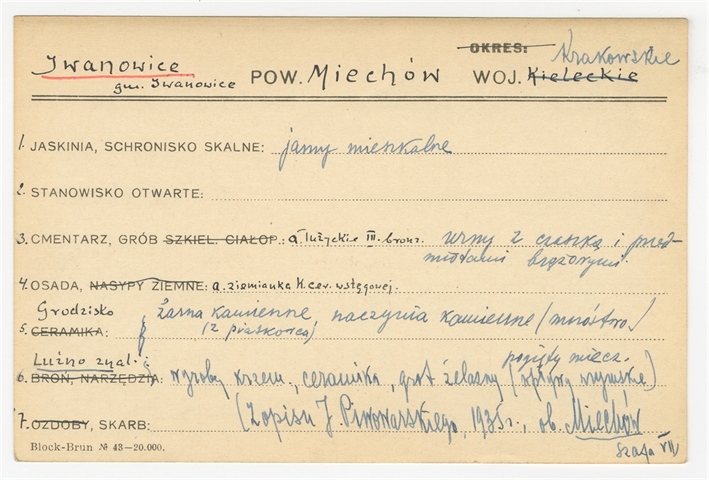 Iwanowice
gm. Iwanowice
POW. Miechów
OKRES:
WOJ. Kieleckie Krakowskie
1. JASKINIA, SCHRONISKO SKALNE: jamy mieszkalne
2. STANOWISKO OTWARTE:
3. CMENTARZ, GRÓB SZKIEL. CIAŁOP.: a łużyckie III. bronz. urny z czaszką i przed-
miotami brązowymi.
4. OSADA, NASYPY ZIEMNE: a. ziemianka k. cer. wstęgowej.
Grodzisko
5. CERAMIKA: żarna kamienne, naczynia kamienne (mnóstwo)
(z piaskowca)
Luźno znal.:
6. BROŃ, NARZĘDZIA: wyroby krzem., ceramika, grot żelazny (wpływy rzymskie)
pogięty miecz.
7. OZDOBY, SKARB: (Zapisu J. Piwowarskiego, 1935 r., ob. Miechów
Szafa VII
Block-Brun № 43-20.000.